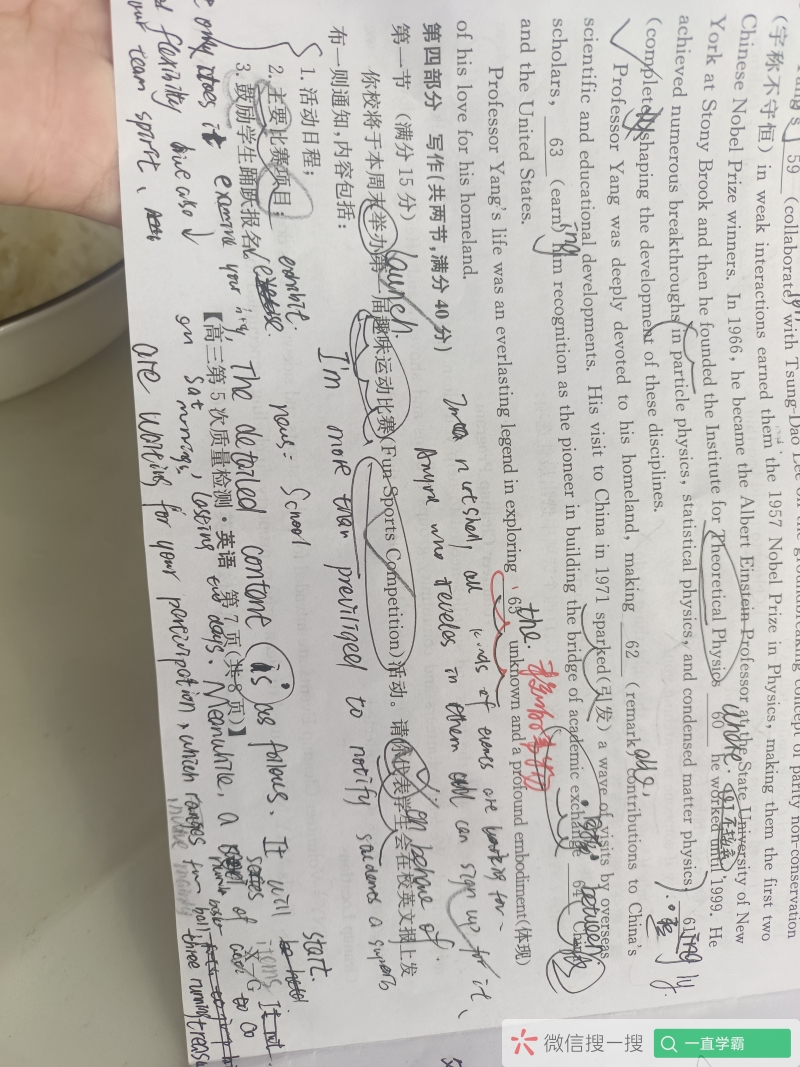 59 (collaborate) with Tsung-Dao Lee on the groundbreaking concept of parity non-conservation
(宇称不守恒) in weak interactions earned them the 1957 Nobel Prize in Physics, making them the first two
Chinese Nobel Prize winners. In 1966, he became the Albert Einstein Professor at the State University of New
York at Stony Brook and then he founded the Institute for Theoretical Physics 60 he worked until 1999. He
where.
achieved numerous breakthroughs in particle physics, statistical physics, and condensed matter physics, 61
ly.
(complete) shaping the development of these disciplines.
Professor Yang was deeply devoted to his homeland, making 62 (remark) contributions to China's
able,
scientific and educational developments. His visit to China in 1971 sparked(引发) a wave of visits by overseas
scholars, 63 (earn) him recognition as the pioneer in building the bridge of academic exchange 64 China
ing
between
and the United States.
Professor Yang's life was an everlasting legend in exploring 65 unknown and a profound embodiment(体现)
the.
of his love for his homeland.
第四部分 写作(共两节,满分 40 分)
第一节 (满分 15 分)
你校将于本周末举办第一届趣味运动比赛(Fun Sports Competition)活动。请你代表学生会在校英文报上发
launch.
on behave of.
有一则通知,内容包括:
1. 活动日程;
2. 主要比赛项目;
3. 鼓励学生踊跃报名。
【高三第 5 次质量检测·英语 第 7 页(共 8 页)】
all kinds of are
can sign up for it,
I'm more than previliged to notify students a superb
exhibit.
news: School
start.
The detailed content is as follows. It will
on Sat mornings, lasting days. Meanwhile, a series of
are waiting for your participation, which ranges
only examine your
flexibility also
team spirit,
微信搜一搜
一直学霸